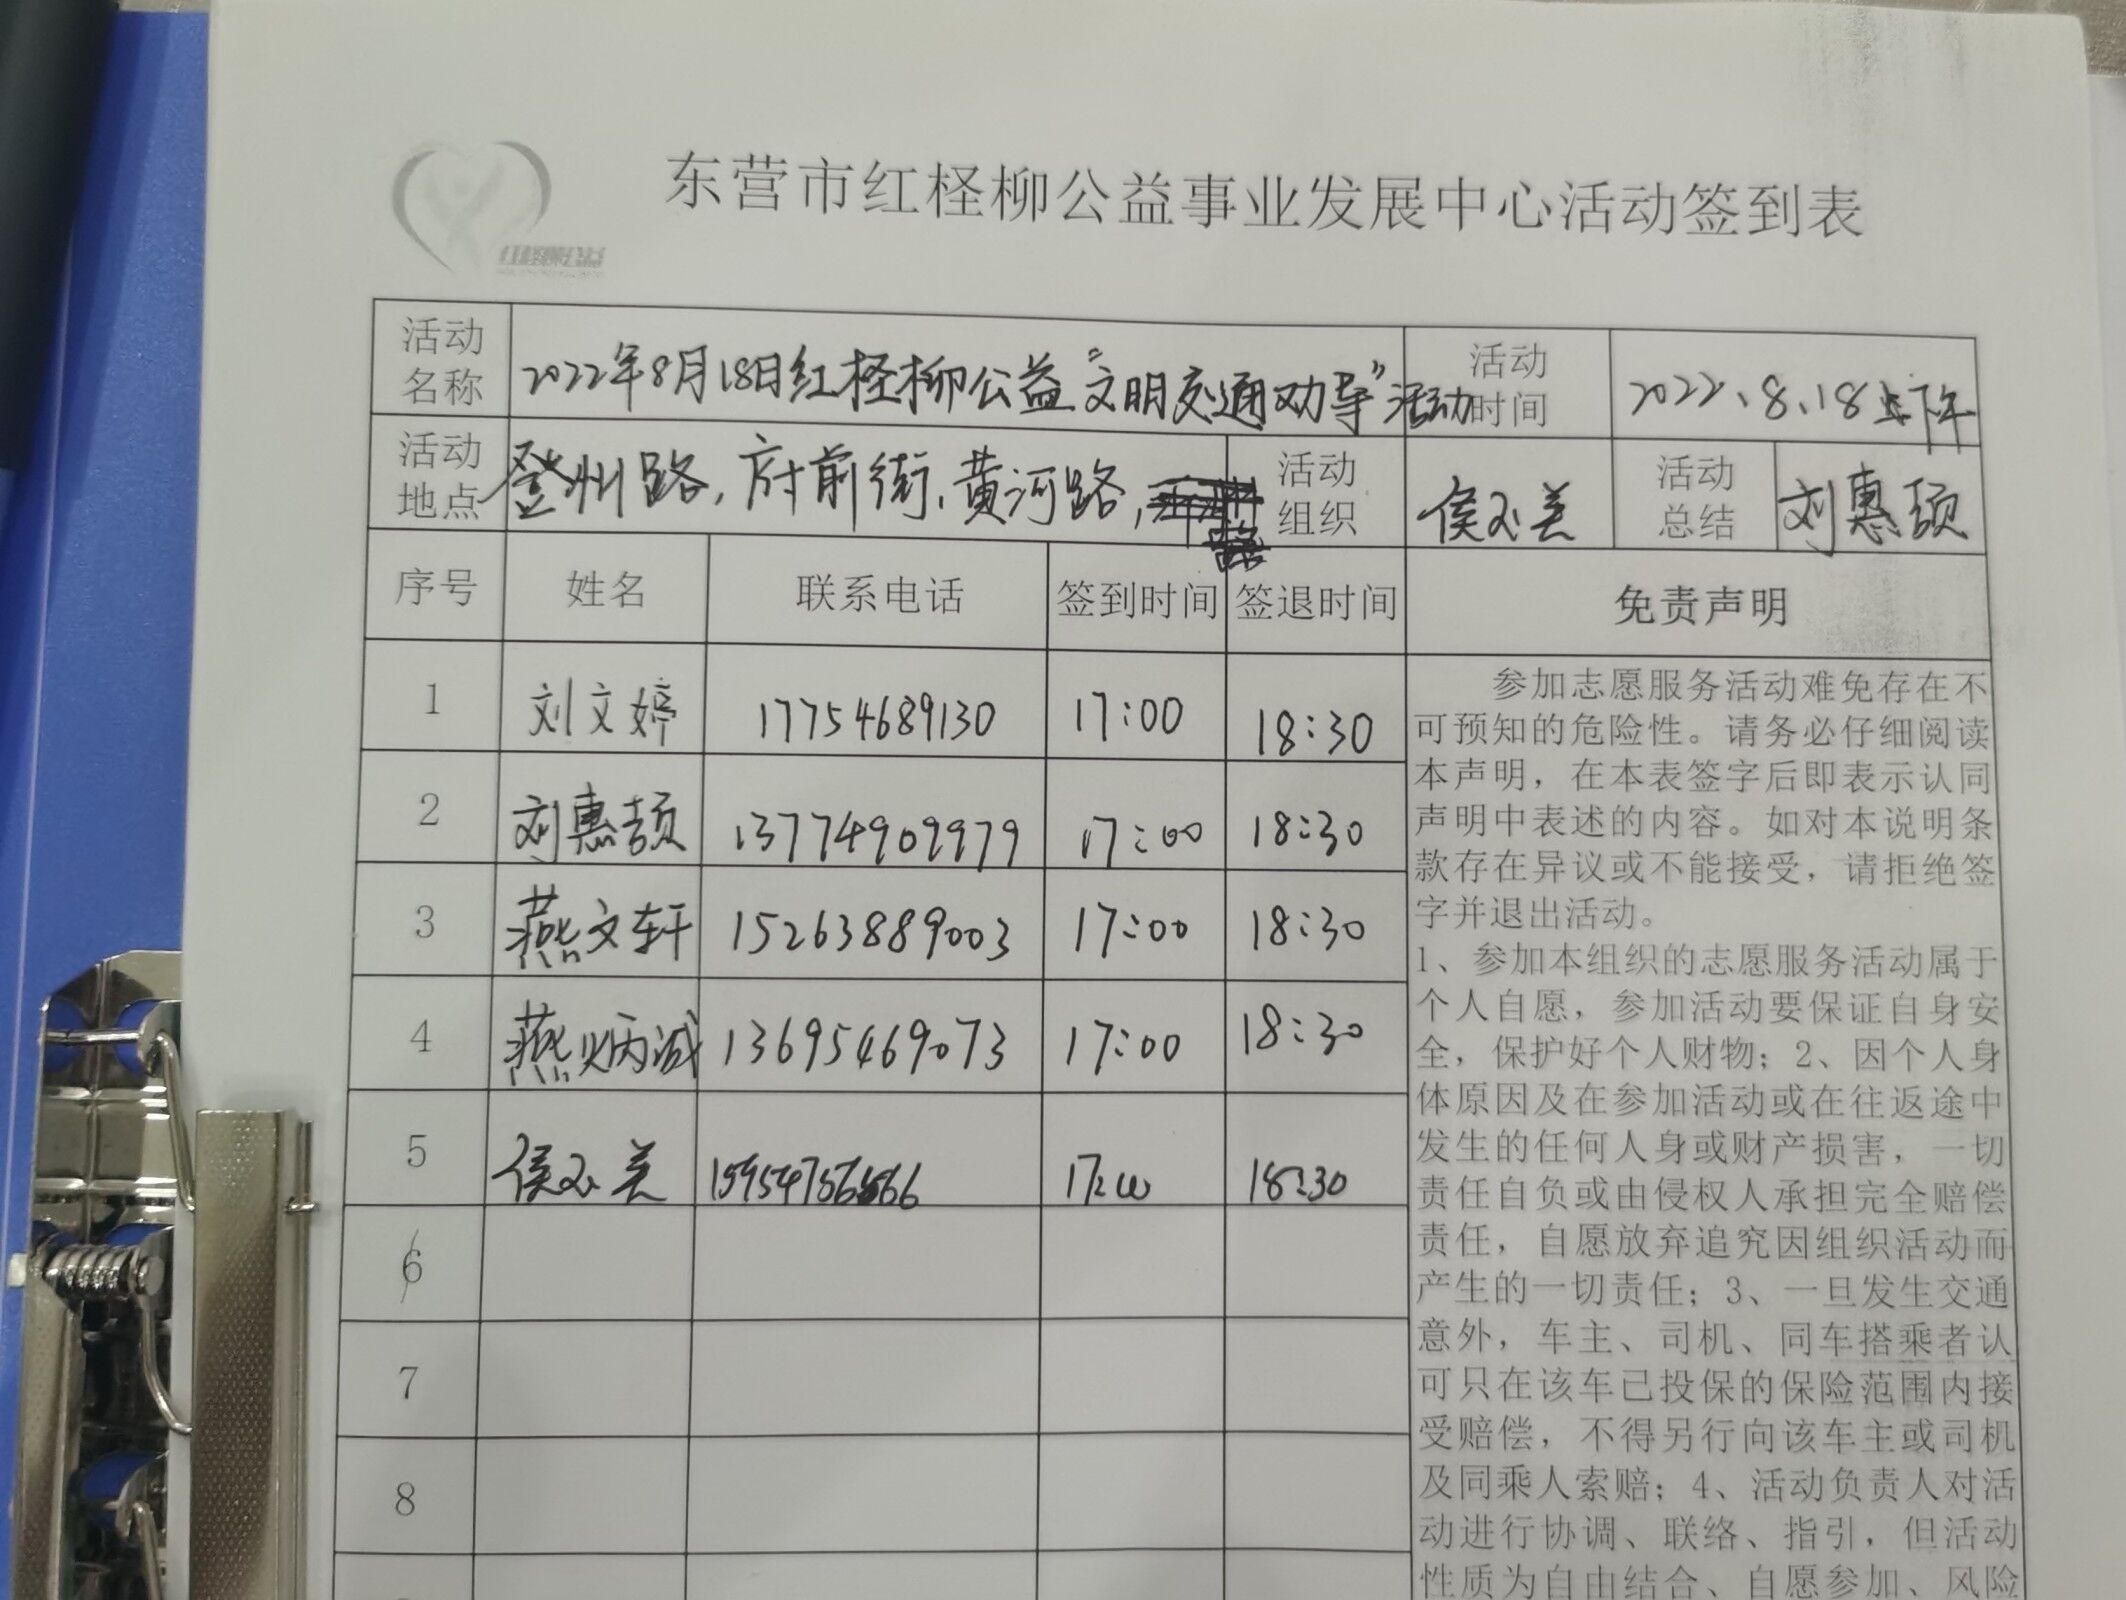 东营市红柽柳公益事业发展中心活动签到表
红柽柳公益
活动名称 2022年8月18日红柽柳公益“文明交通劝导”活动 活动时间 2022、8、18下午
活动地点 登州路,府前街,黄河路, 活动组织 侯玉美 活动总结 刘惠颉
序号 姓名 联系电话 签到时间 签退时间 免责声明
1 刘文婷 17754689130 17:00 18:30
2 刘惠颉 13774909979 17:00 18:30
3 燕文轩 15263889003 17:00 18:30
4 燕炳诚 13695469073 17:00 18:30
5 侯玉美 17:00 18:30
6
7
8
参加志愿服务活动难免存在不
可预知的危险性。请务必仔细阅读
本声明，在本表签字后即表示认同
声明中表述的内容。如对本说明条
款存在异议或不能接受，请拒绝签
字并退出活动。
1、参加本组织的志愿服务活动属于
个人自愿，参加活动要保证自身安
全，保护好个人财物；2、因个人身
体原因及在参加活动或在往返途中
发生的任何人身或财产损害，一切
责任自负或由侵权人承担完全赔偿
责任，自愿放弃追究因组织活动而
产生的一切责任；3、一旦发生交通
意外，车主、司机、同车搭乘者认
可只在该车已投保的保险范围内接
受赔偿，不得另行向该车主或司机
及同乘人索赔；4、活动负责人对活
动进行协调、联络、指引，但活动
性质为自由结合、自愿参加、风险